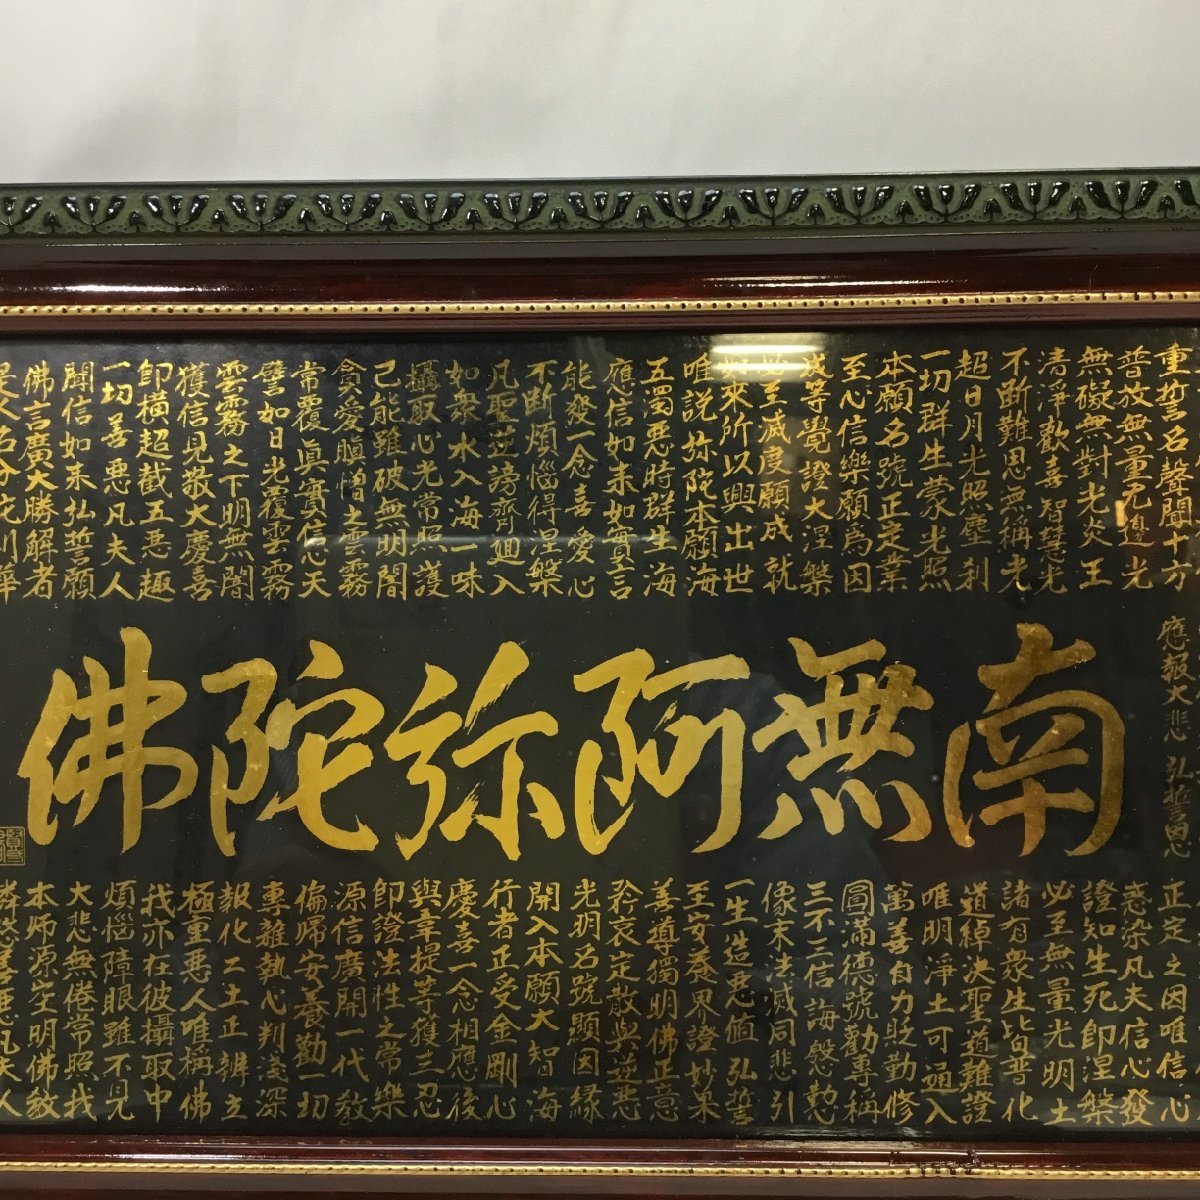 重誓名聲聞十方
普放無量无邊光
無礙無對光炎王
清淨歡喜智慧光
不断難思無稱光
超日月光照塵刹
一切群生蒙光照
本願名號正定業
至心信樂願爲因
成等覺證大涅槃
必至滅度願成就
如來所以興出世
唯説弥陀本願海
五濁惡時群生海
應信如来如實言
能發一念喜愛心
不断煩惱得涅槃
凡聖逆謗齊廻入
如衆水入海一味
攝取心光常照護
已能雖破無明闇
貪愛瞋憎之雲霧
常覆眞實信心天
譬如日光覆雲霧
雲霧之下明無闇
獲信見敬大慶喜
即横超截五惡趣
一切善惡凡夫人
聞信如来弘誓願
佛言廣大勝解者
是人名分陀利華
應報大悲弘誓恩
南無阿弥陀佛
正定之因唯信心
惑染凡夫信心發
證知生死即涅槃
必至無量光明土
諸有衆生皆普化
道綽決聖道難證
唯明淨土可通入
萬善自力貶勤修
圓滿德號勸專稱
三不三信誨慇懃
像末法滅同悲引
一生造惡値弘誓
至安養界證妙果
善導獨明佛正意
矜哀定散與逆惡
光明名號顯因縁
開入本願大智海
行者正受金剛心
慶喜一念相應後
與韋提等獲三忍
即證法性之常樂
源信廣開一代教
偏歸安養勸一切
專雜執心判淺深
報化二土正辨立
極重惡人唯稱佛
我亦在彼攝取中
煩惱障眼雖不見
大悲無倦常照我
本師源空明佛教
憐愍善惡凡夫人